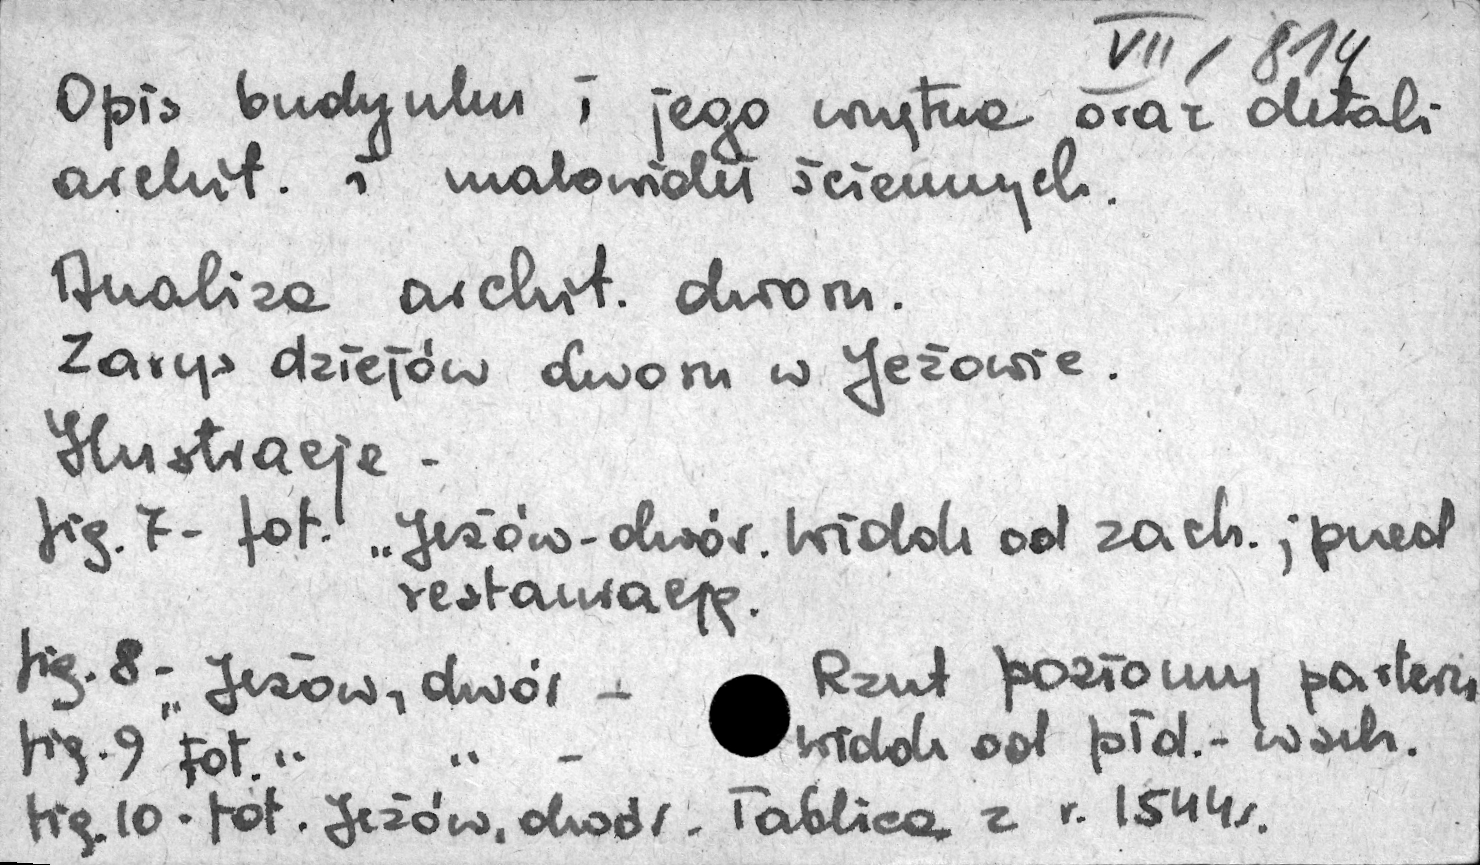 VII / 814
Opis budynku i jego wnętrza oraz detali
archit. i malowideł ściennych.
Analiza archit. dworu.
Zarys dziejów dworu w Jeżowie.
Ilustracje -
fig. 7 - fot. „Jeżów - dwór. Widok od zach. ; przed
restauracją.
fig. 8 - „Jeżów, dwór - Rzut poziomy parteru
fig. 9 fot. " " - widok od płd. - wsch.
fig. 10 - fot. Jeżów, dwór. Tablica z r. 1544r.